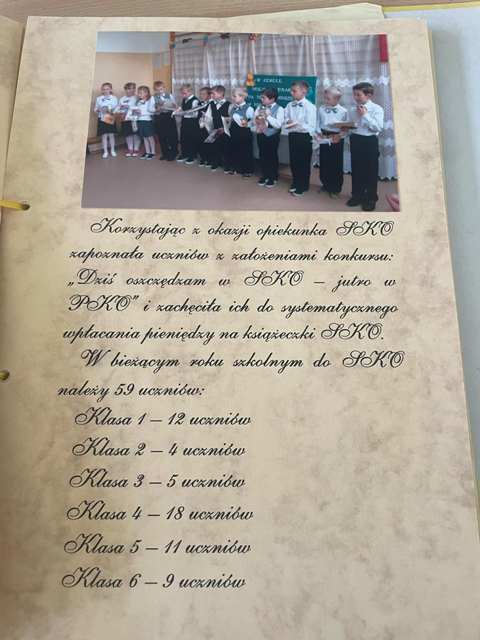 W SZKOLE
Korzystając z okazji opiekunka SKO
zapoznała uczniów z założeniami konkursu:
„Dziś oszczędzam w SKO – jutro w
PKO” i zachęciła ich do systematycznego
wpłacania pieniędzy na książeczki SKO.
W bieżącym roku szkolnym do SKO
należy 59 uczniów:
Klasa 1 – 12 uczniów
Klasa 2 – 4 uczniów
Klasa 3 – 5 uczniów
Klasa 4 – 18 uczniów
Klasa 5 – 11 uczniów
Klasa 6 – 9 uczniów